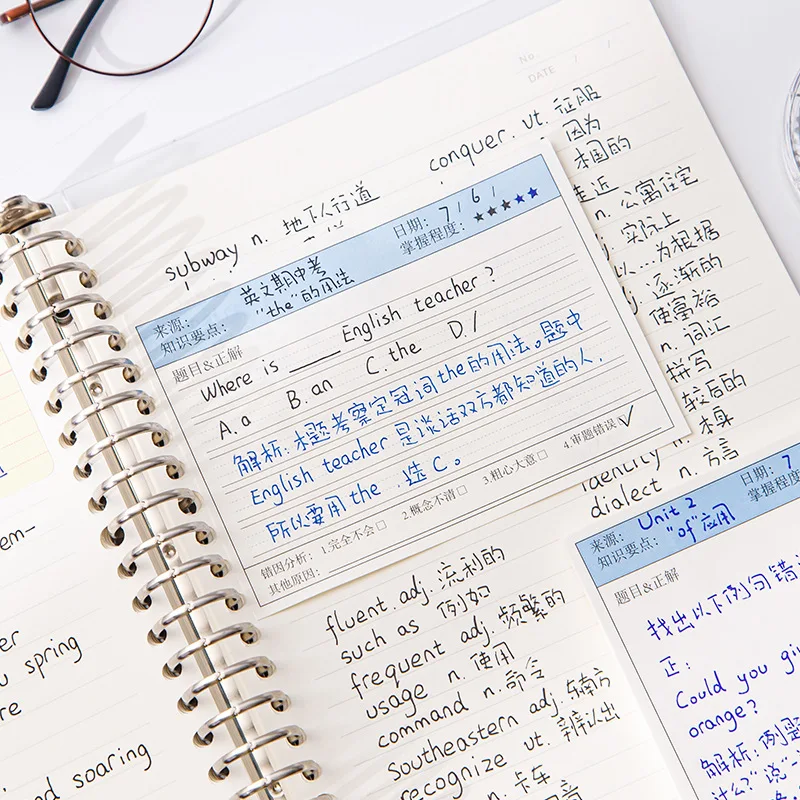 No
DATE / /
conquer. vt. 征服
因为
本国的
走近
subway n. 地下人行道
n. 公寓住宅
实际上
以…为根据
逐渐的
使富裕
n. 词汇
拼写
较后的
n. 本身
identity
dialect n. 方言
来源: 英文期中考
日期: 7 / 6 /
知识要点: "the"的用法
掌握程度: ★★★★★
题目&正解
Where is ____ English teacher ?
A. a B. an C. the D. /
解析: 本题考察定冠词the的用法。题中
English teacher 是谈话双方都知道的人,
所以要用the .选C。
错因分析: 1.完全不会□ 2.概念不清□ 3.粗心大意□ 4.审题错误☑
其他原因:
fluent. adj. 流利的
such as 例如
frequent adj. 频繁的
usage n. 使用
command n. 命令
Southeastern adj. 东南方
recognize vt. 辨认出
n. 卡车
来源: Unit 2
日期: 7
知识要点: "of"应用
掌握程度
题目&正解
找出以下例句错
正:
Could you
orange?
解析: 例题
什么?"说"一
em-
er
u spring
re
d soaring